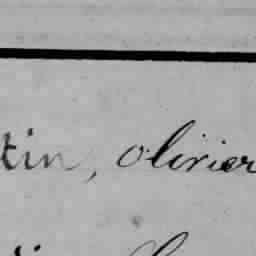 tin, olivier